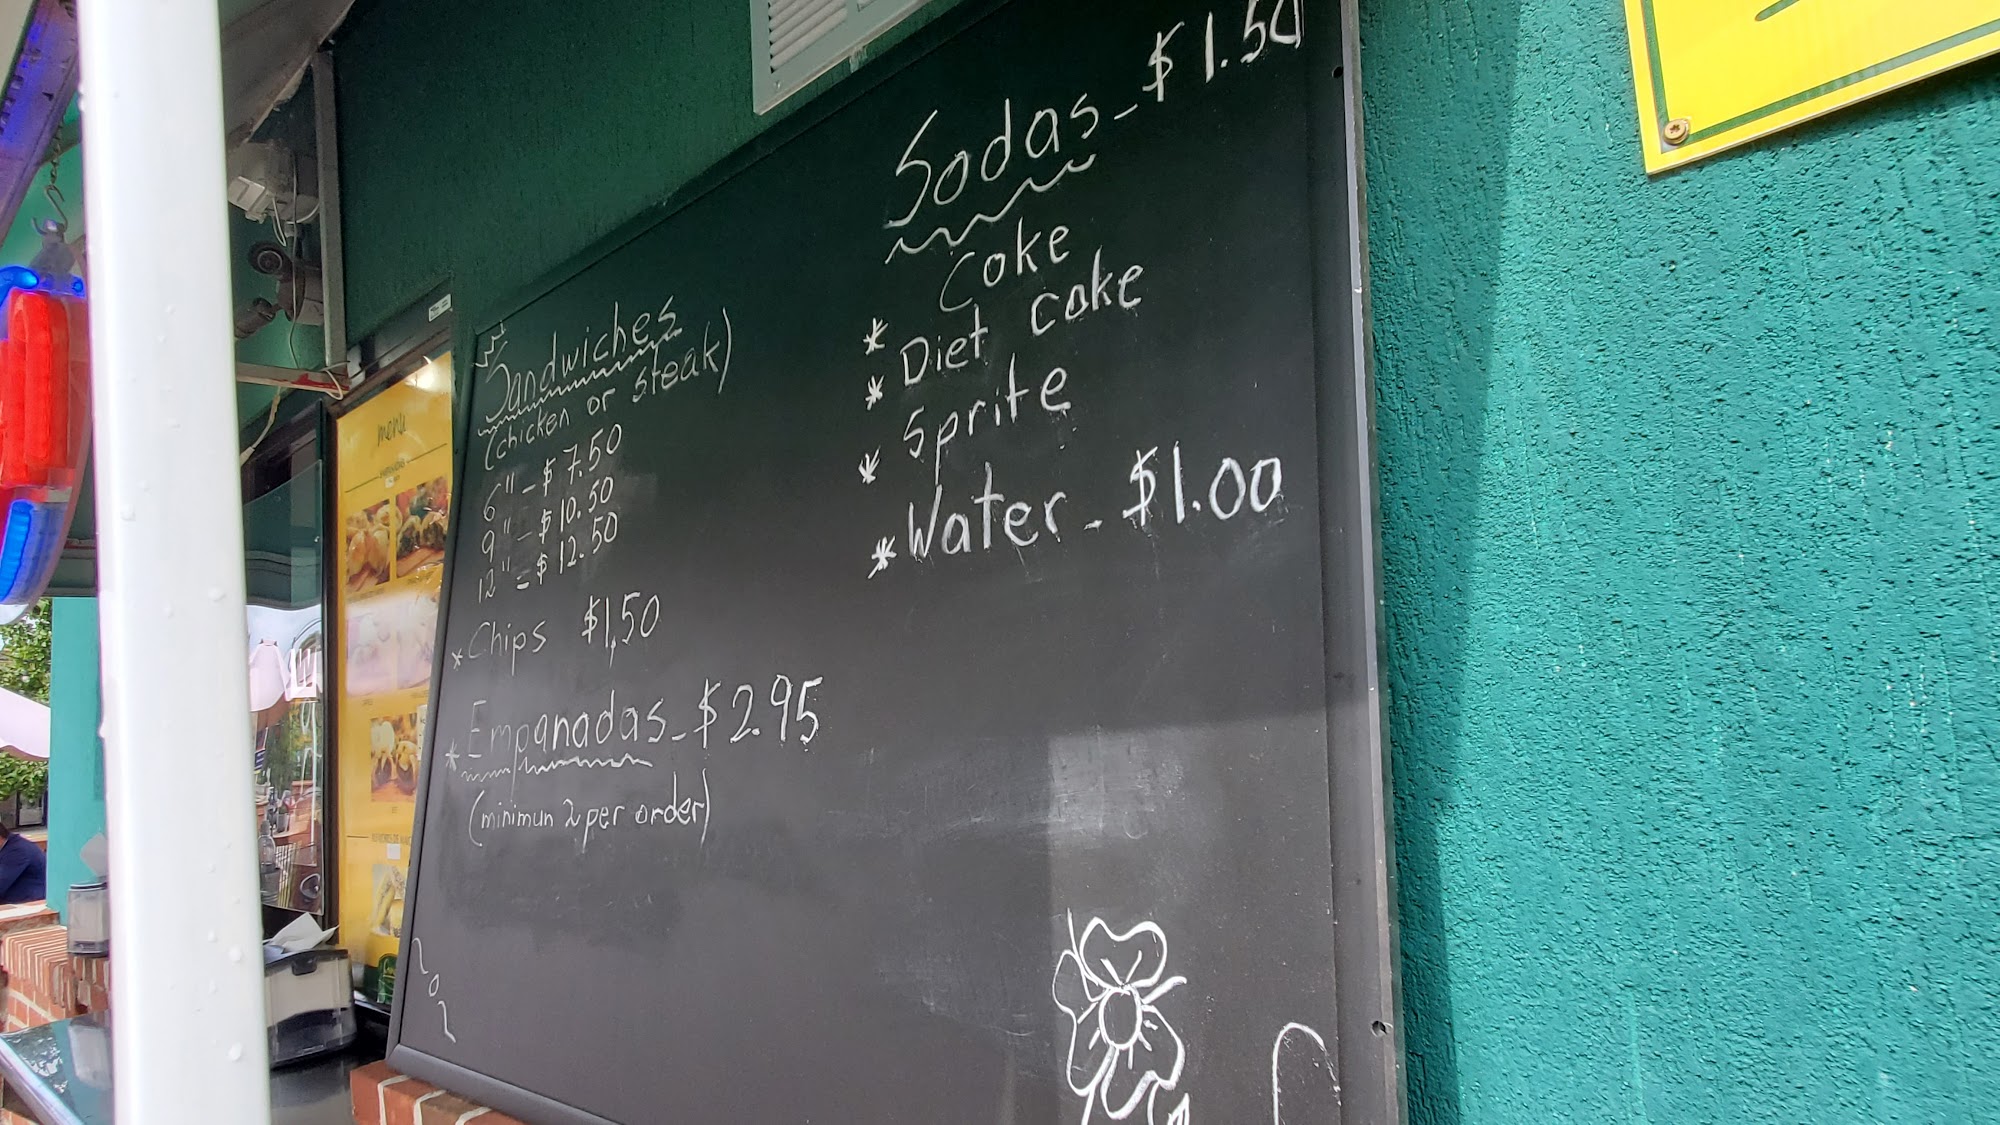 Sandwiches
(chicken or steak)
6" - $7.50
9" - $10.50
12" = $12.50
* Chips $1,50
* Empanadas - $2.95
(minimun 2 per order)
Sodas - $1.50
Coke
* Diet coke
* Sprite
* Water - $1.00
menu